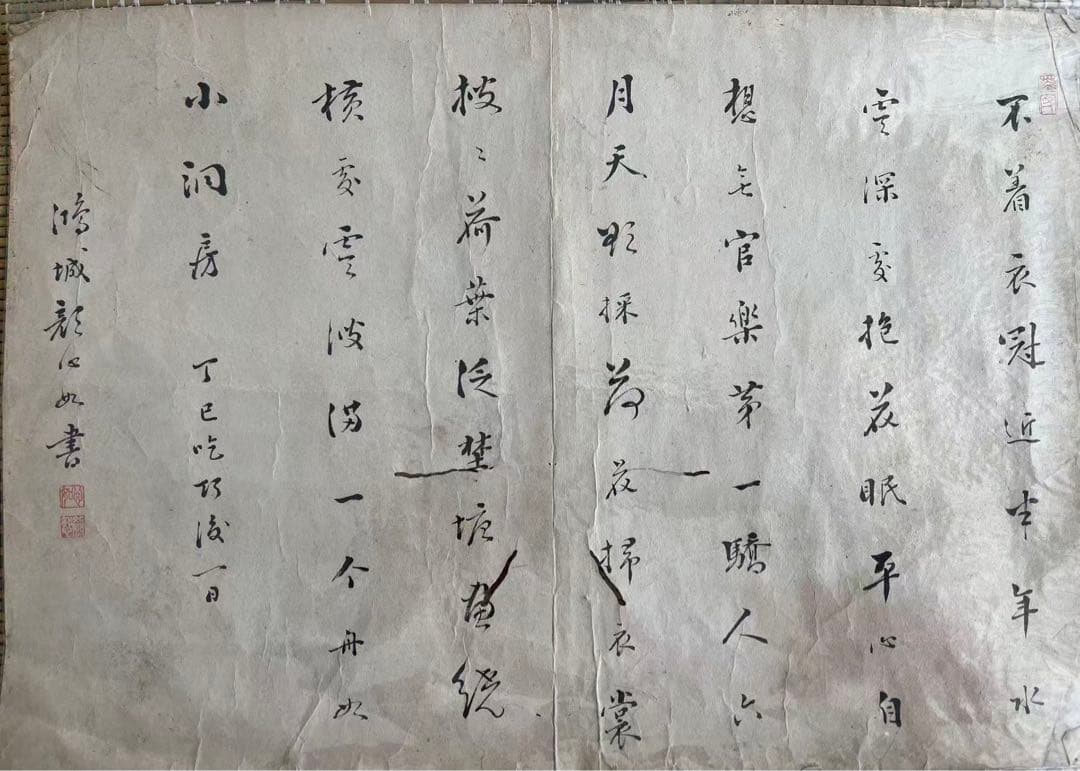 不着衣冠近半年水
雲深處抱花眠平心自
想無官樂第一驕人六
月天採荷花掃衣裳
荷葉泛埜塘畫繞
橫處雲波滿一个舟如
小洞房 丁巳吃巧後一日
城顏如書